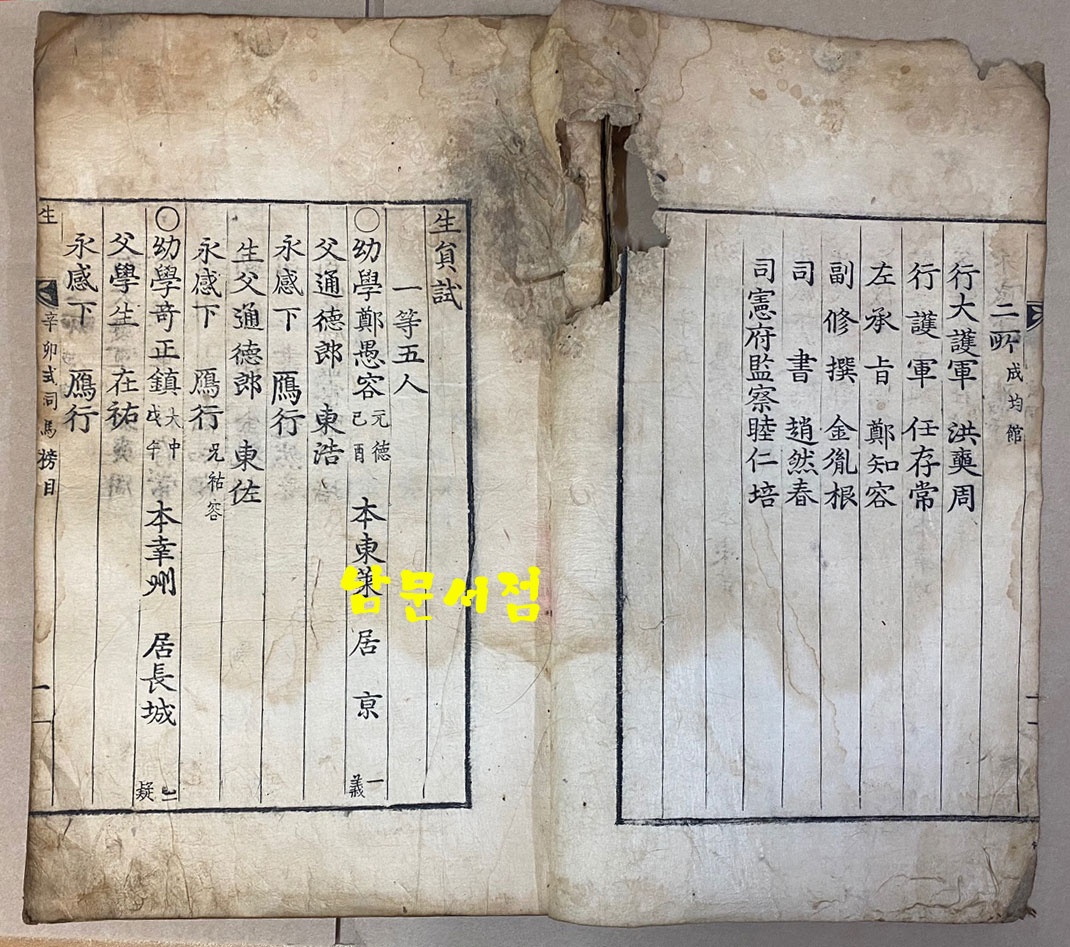 二所 成均館
行大護軍 洪奭周
行護軍 任存常
左承旨 鄭知容
副修撰 金胤根
司書 趙然春
司憲府監察睦仁培
生員試
一等五人
○幼學鄭愚容 元德 己酉 本東萊 居京 一義
父通德郎 東浩
永感下 鴈行
生父通德郎 東佐
永感下 鴈行 兄祐容
○幼學奇正鎮 大中 戊午 本幸州 居長城 二疑
父學生在祐
永感下 鴈行
生 辛卯式司馬榜目 一
남문서점